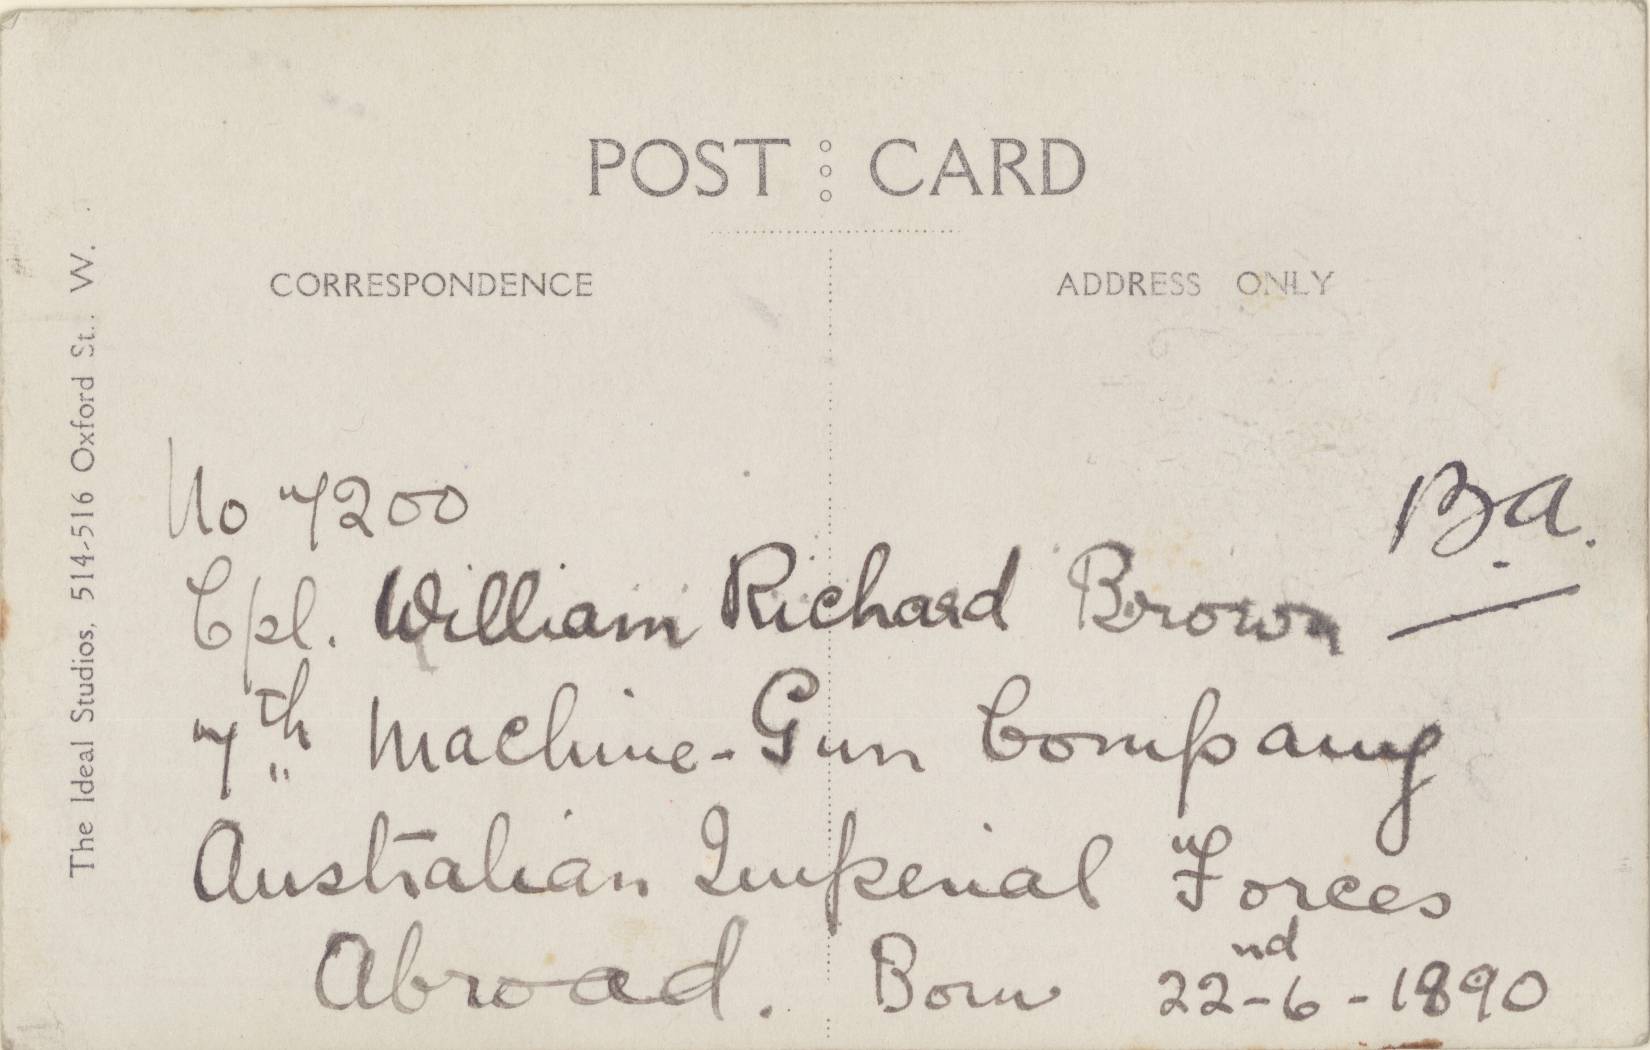 POST CARD
CORRESPONDENCE
ADDRESS ONLY
The Ideal Studios, 514-516 Oxford St., W.
No 7200
B.A.
Cpl. William Richard Brown
7th Machine-Gun Company
Australian Imperial Forces
Abroad. Born 22nd-6-1890